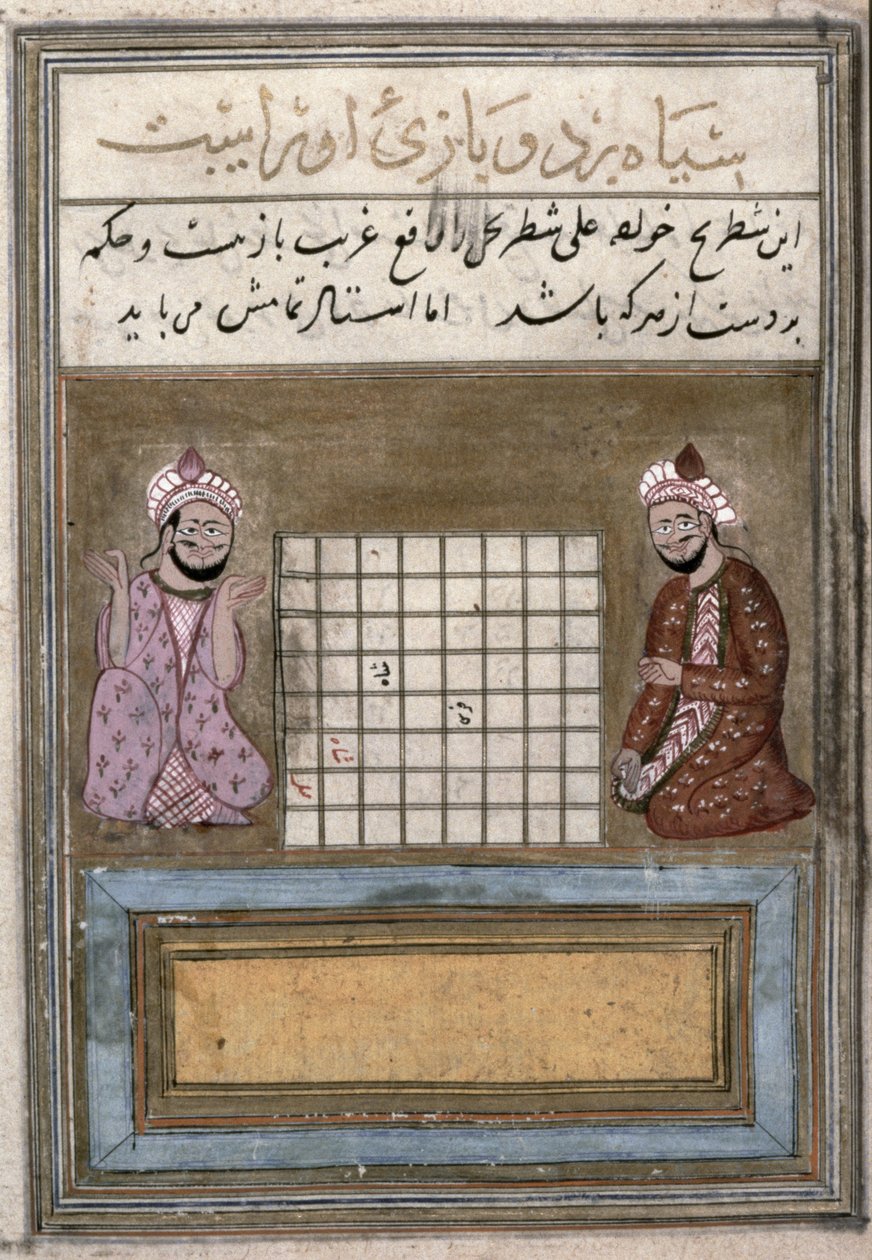 سیاه برد و بازی او راست
این شطرنج خواجه علی شطرنجی را واقع غریب بازیست و حکم
بردست از هر که باشد اما استاد تمامش می باید
شاه